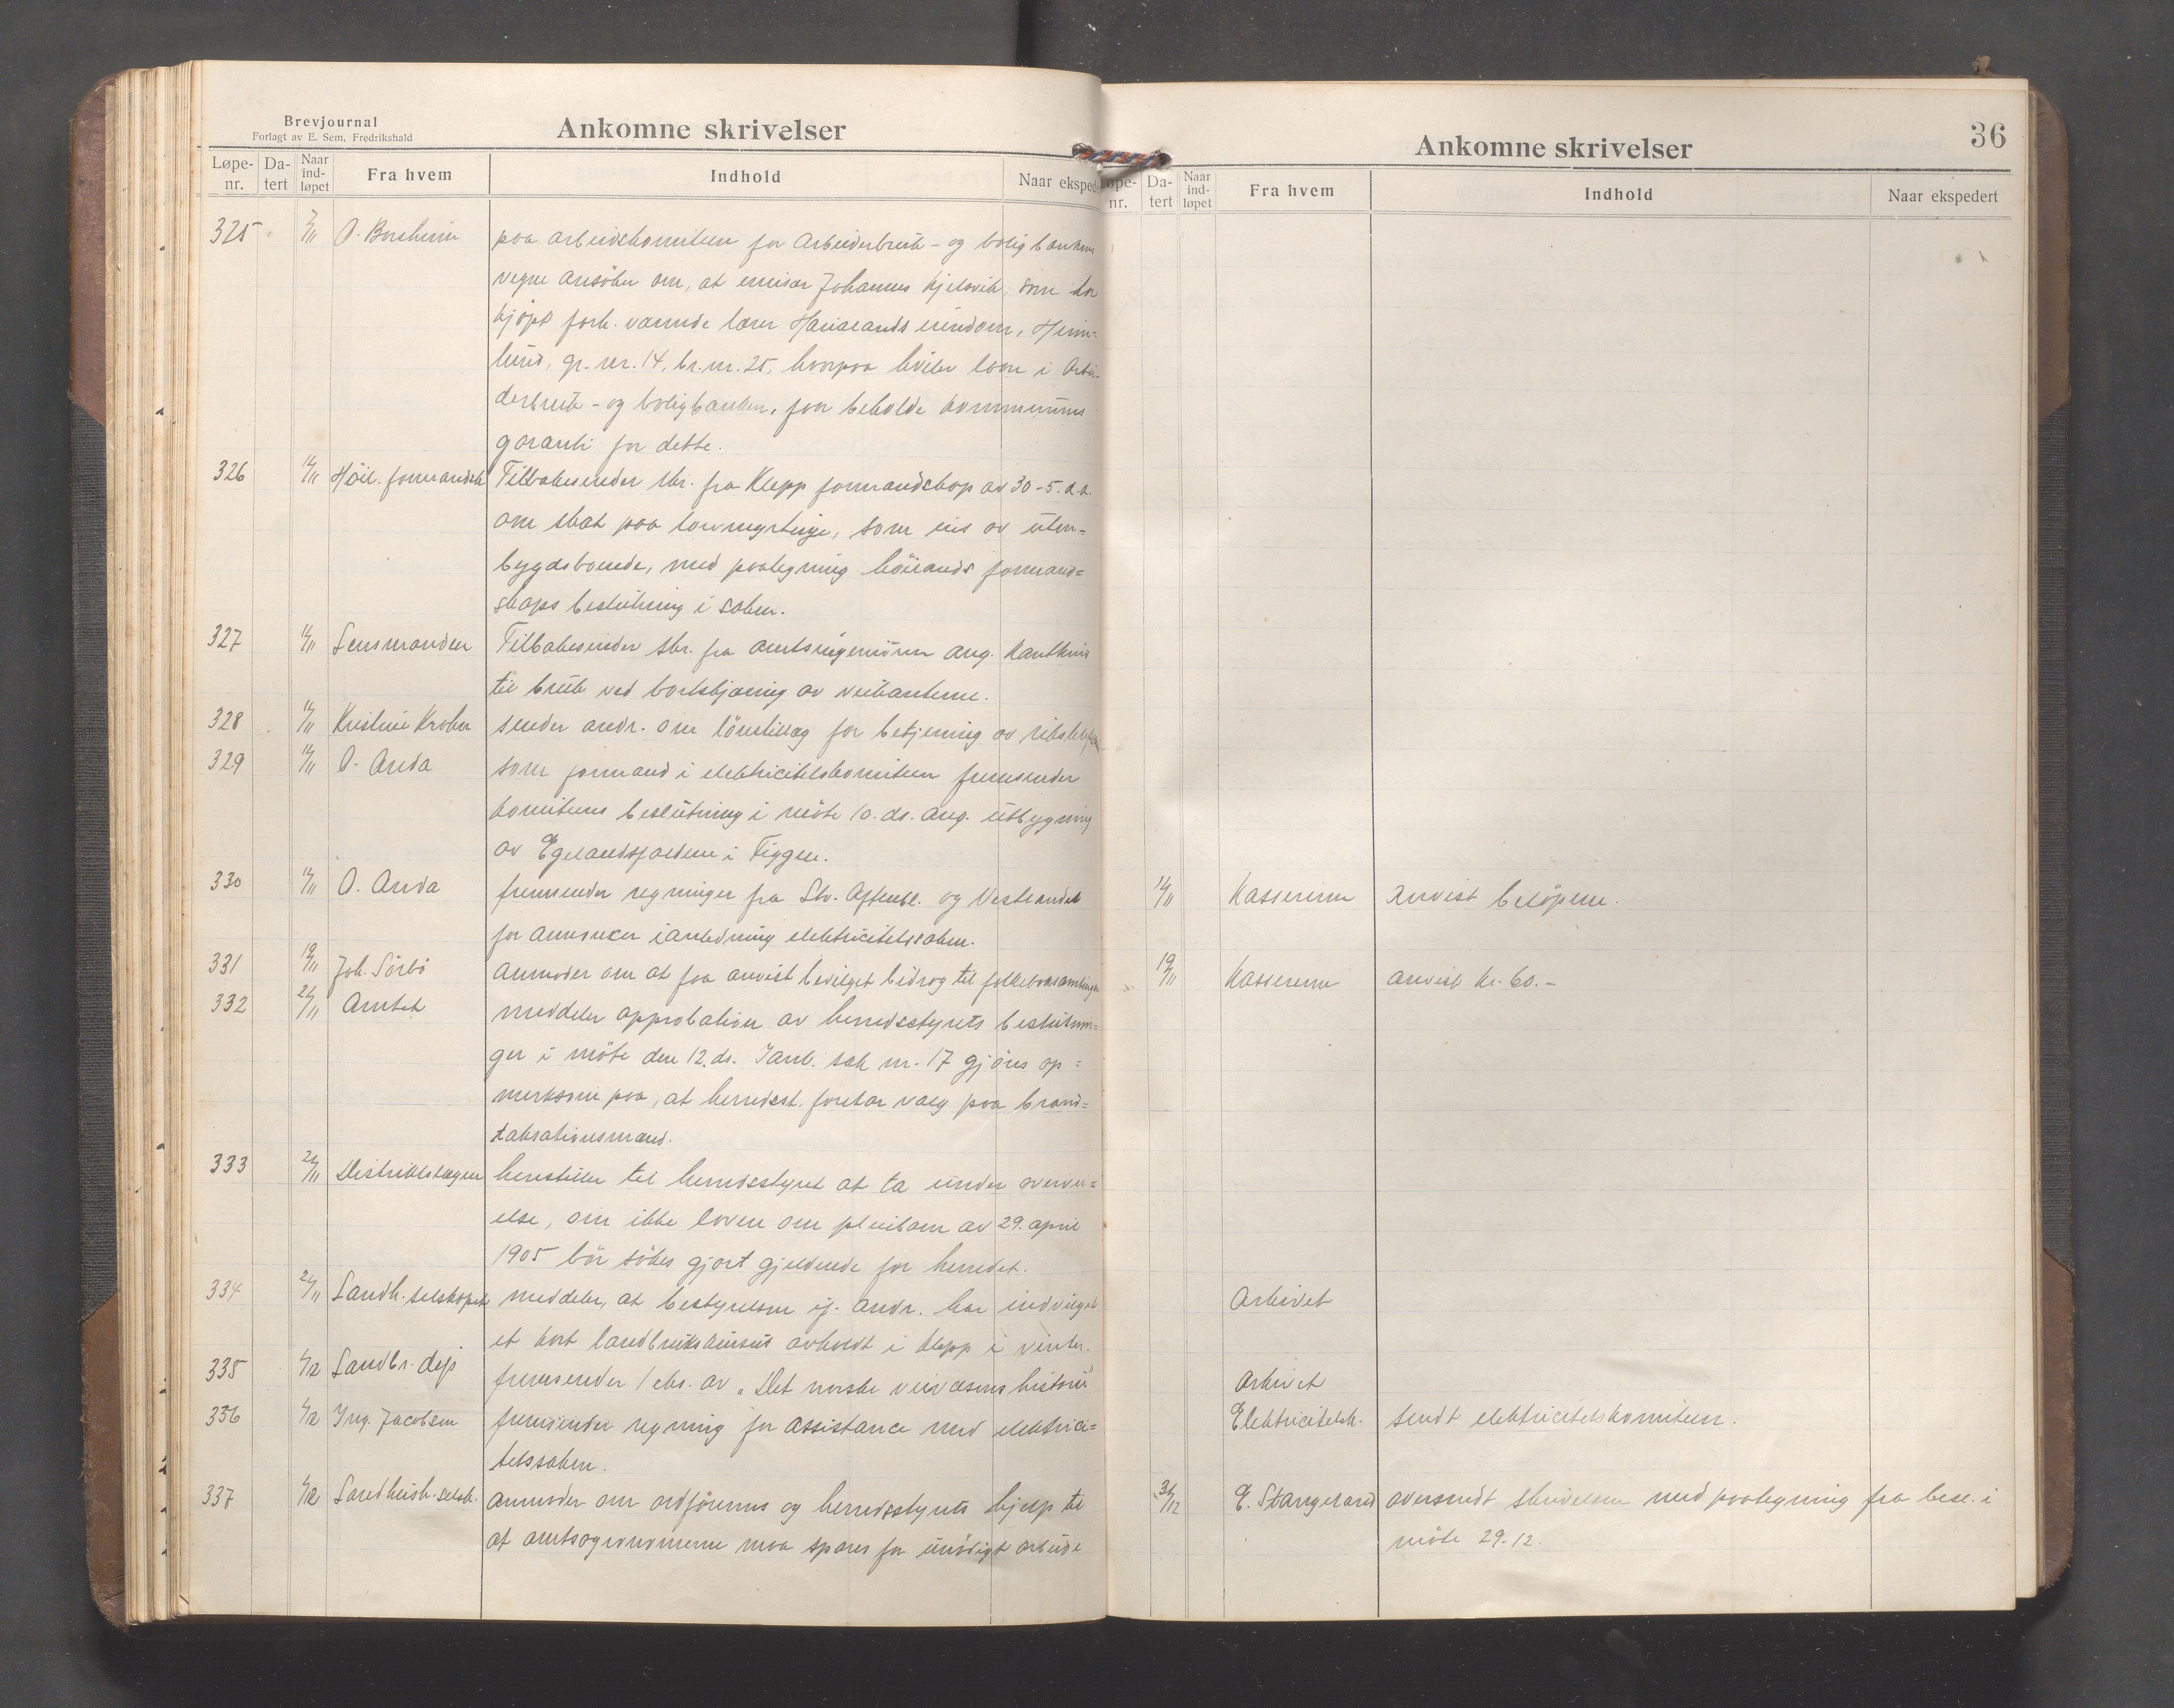 Brevjournal
Forlagt av E. Sem, Fredrikshald
Ankomne skrivelser
Løpe-nr. Da-tert Naar ind-løpet Fra hvem Indhold Naar eksped
325 7/11 O. Borsheim paa arbeidskomiteen for Arbeiderbruk- og boligbankens
vegne ansöker om, at emisær Johannes Kjelsvik, som har
kjöpt forh. værende lærer Haualands eiendom, Heim-
lund, gr. nr. 14, br. nr. 25, hvorpaa hviler laan i Arbei-
derbruk- og boligbanken, faar beholde kommunens
garanti for dette.
326 14/11 Höil. formandsk. Tilbakesender skr. fra Klepp formandskap av 30-5. d.a.
om skat paa torvmyrteige, som eies av uten-
bygdsboende, med paategning höilands formand-
skaps beslutning i saken.
327 14/11 Lensmanden Tilbakesender skr. fra amtsingeniören ang. kantkniv
til bruk ved bortskjæring av veikanterne.
328 14/11 Kristine Kroken sender andr. om lönstillæg for betjening av rikstelefon
329 14/11 O. Anda som formand i elektricitetskomiteen fremsender
komiteens beslutning i möte 10. ds. ang. utbygning
av Egelandsfaldene i Figgen.
330 14/11 O. Anda fremsender regninger fra Stv. Aftenbl. og Vestlandet
for annoncer i anledning elektricitetssaken.
331 19/11 Joh. Sörbö anmoder om at faa anvist bevilget bidrag til folkeboksamlingen
332 26/11 Amtet meddeler approbation av herredsstyrets beslutnin-
ger i möte den 12. ds. I anl. sak nr. 17 gjöres op-
merksom paa, at herredsst. foretar valg paa brand-
taksationsmænd.
333 26/11 Distriktslægen henstiller til herredsstyret at ta under overvei-
else, om ikke loven om pleiebarn av 29. april
1905 bör sökes gjort gjeldende for herredet.
334 26/11 Landh. selskapet meddeler, at bestyrelsen if. andr. har indvilget
et kort landbrukskursus avholdt i Klepp i vinter.
335 1/12 Landbr. dep fremsender 1 eks. av "Det norske veivæsens historie"
336 1/12 Ing. Jacobsen fremsender regning for assistance med elektrici-
tetssaken.
337 1/12 Landhush. selsk. anmoder om ordförerens og herredsstyrets hjelp til
at amtsagronomerne maa spares for unödigt arbeide
Ankomne skrivelser
36
Løpe-nr. Da-tert Naar ind-løpet Fra hvem Indhold Naar ekspedert
14/11 Kassereren Anvist belöpene.
19/11 Kassereren anvist kr. 60.-
Arkivet
Arkivet
Elektricitetsk. sendt elektricitetskomiteen.
31/12 E. Stangeland oversendt skrivelsen med paategning fra besl. i
möte 29.12.